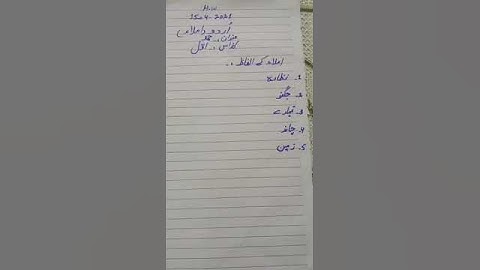 H.W
15-04-2021
اُردو (املاء)
عنوان :- حمد
کلاس :- اوّل
املاء کے الفاظ :-
1. نظارے
2. جگنو
3. تارے
4. چاند
5. زمین